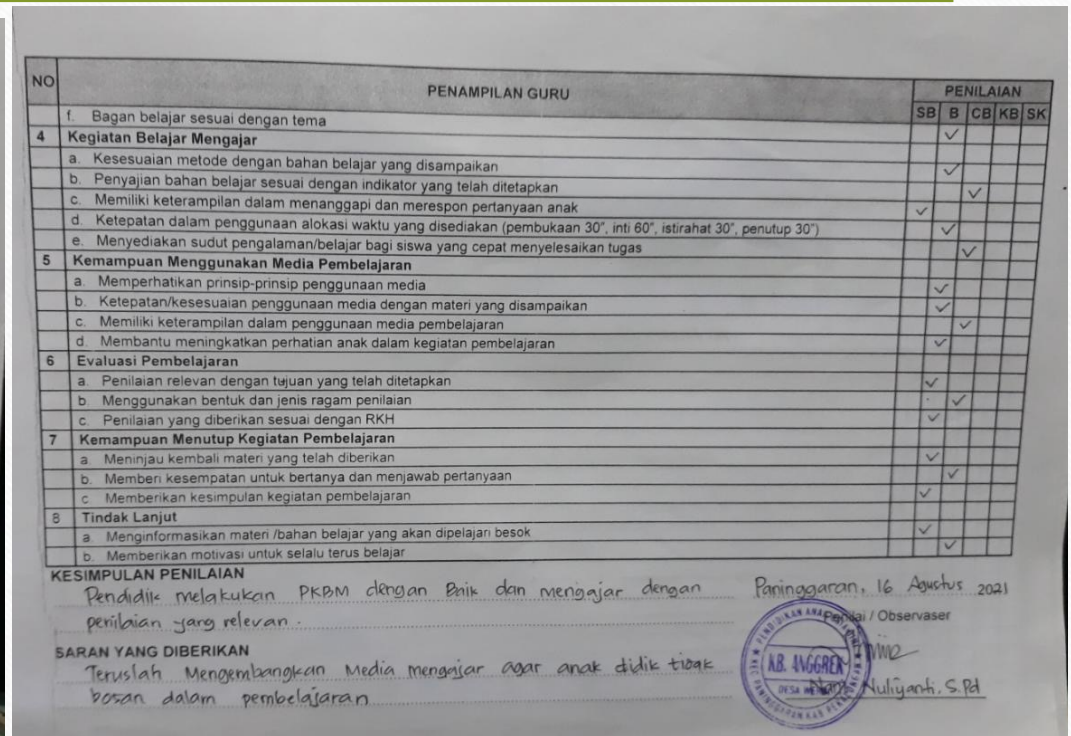 NO PENAMPILAN GURU PENILAIAN
SB B CB KB SK
f. Bagan belajar sesuai dengan tema ✓
4 Kegiatan Belajar Mengajar
a. Kesesuaian metode dengan bahan belajar yang disampaikan ✓
b. Penyajian bahan belajar sesuai dengan indikator yang telah ditetapkan ✓
c. Memiliki keterampilan dalam menanggapi dan merespon pertanyaan anak ✓
d. Ketepatan dalam penggunaan alokasi waktu yang disediakan (pembukaan 30", inti 60", istirahat 30", penutup 30") ✓
e. Menyediakan sudut pengalaman/belajar bagi siswa yang cepat menyelesaikan tugas ✓
5 Kemampuan Menggunakan Media Pembelajaran
a. Memperhatikan prinsip-prinsip penggunaan media ✓
b. Ketepatan/kesesuaian penggunaan media dengan materi yang disampaikan ✓
c. Memiliki keterampilan dalam penggunaan media pembelajaran ✓
d. Membantu meningkatkan perhatian anak dalam kegiatan pembelajaran ✓
6 Evaluasi Pembelajaran
a. Penilaian relevan dengan tujuan yang telah ditetapkan ✓
b. Menggunakan bentuk dan jenis ragam penilaian ✓
c. Penilaian yang diberikan sesuai dengan RKH ✓
7 Kemampuan Menutup Kegiatan Pembelajaran
a. Meninjau kembali materi yang telah diberikan ✓
b. Memberi kesempatan untuk bertanya dan menjawab pertanyaan ✓
c Memberikan kesimpulan kegiatan pembelajaran ✓
8 Tindak Lanjut
a. Menginformasikan materi /bahan belajar yang akan dipelajari besok ✓
b. Memberikan motivasi untuk selalu terus belajar ✓
KESIMPULAN PENILAIAN
Pendidik melakukan PKBM dengan Baik dan mengajar dengan
penilaian yang relevan.
SARAN YANG DIBERIKAN
Teruslah Mengembangkan Media mengajar agar anak didik tidak
bosan dalam pembelajaran
Paninggaran, 16 Agustus 2021
Penilai / Observaser
PENDIDIKAN ANAK
KB. ANGGREK
DESA
KEC PANINGGARAN KAB
Nuliyanti. S.Pd